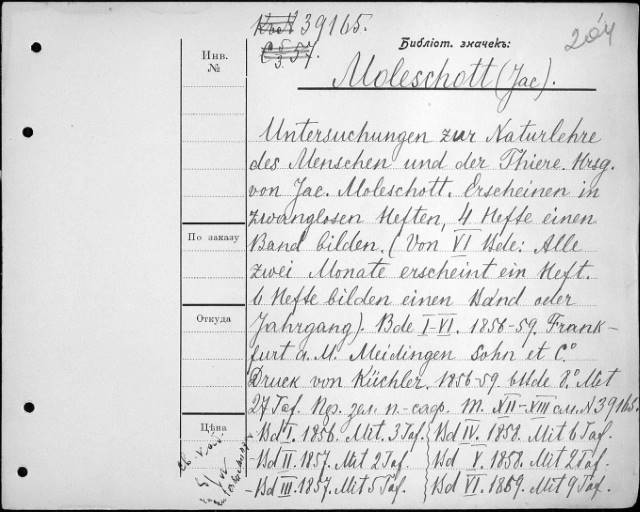 39165.
С 57.
3.
204
Библіот. значекъ:
Moleschott (Jac).
Инв.
№
Untersuchungen zur Naturlehre
des Menschen und der Thiere. Hrsg.
von Jac. Moleschott. Erscheinen in
zwanglosen Heften, 4 Hefte einen
Band bilden. (Von VI Bde: Alle
zwei Monate erscheint ein Heft.
6 Hefte bilden einen Band oder
Jahrgang). Bde I-VI. 1856-59. Frank-
furt a. M. Meidingen Sohn et Cº.
Druck von Küchler. 1856-59. 6 Bde 8º. Mit
27 Taf. т. XII-XIII см. N 39165.
По заказу
Откуда
Цѣна
Bd I. 1856. Mit 3 Taf.
Bd II. 1857. Mit 2 Taf.
Bd III. 1857. Mit 5 Taf.
Bd IV. 1858. Mit 6 Taf.
Bd V. 1858. Mit 2 Taf.
Bd VI. 1859. Mit 9 Taf.